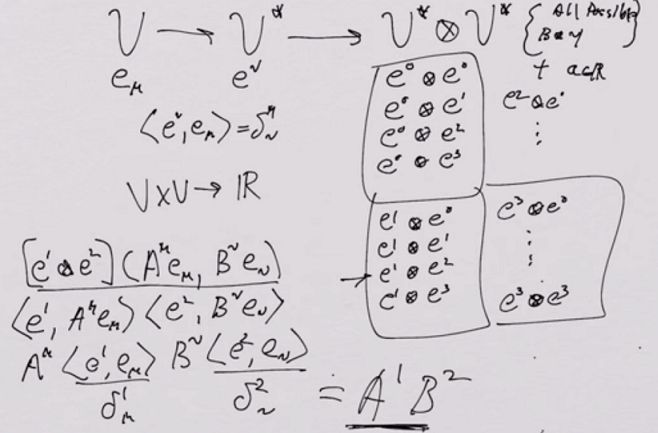 V → V* → V* ⊗ V* { All Possible
e_μ e^ν
+ a∈R
⟨e^ν, e_μ⟩ = δ^μ_ν
V × V → ℝ
e⁰ ⊗ e⁰
e⁰ ⊗ e¹
e⁰ ⊗ e²
e⁰ ⊗ e³
e¹ ⊗ e⁰
e¹ ⊗ e¹
→ e¹ ⊗ e²
e¹ ⊗ e³
e² ⊗ e⁰
⋮
e³ ⊗ e⁰
⋮
e³ ⊗ e³
[e¹ ⊗ e²] (A^μ e_μ, B^ν e_ν)
⟨e¹, A^μ e_μ⟩ ⟨e², B^ν e_ν⟩
A^μ ⟨e¹, e_μ⟩ B^ν ⟨e², e_ν⟩
δ¹_μ δ²_ν = A¹ B²